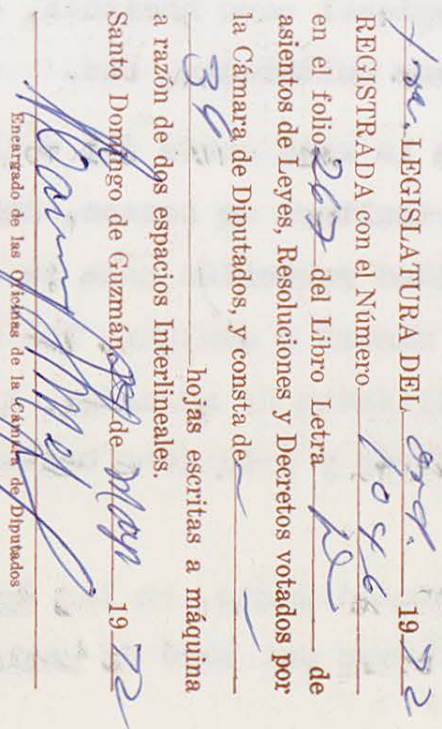 1ra. LEGISLATURA DEL Ord. 1972
REGISTRADA con el Número 1046
en el folio 269 del Libro Letra D de
asientos de Leyes, Resoluciones y Decretos votados por
la Cámara de Diputados, y consta de
39 hojas escritas a máquina
a razón de dos espacios Interlineales.
Santo Domingo de Guzmán de Mayo 1972
Encargado de las Oficinas de la Cámara de Diputados